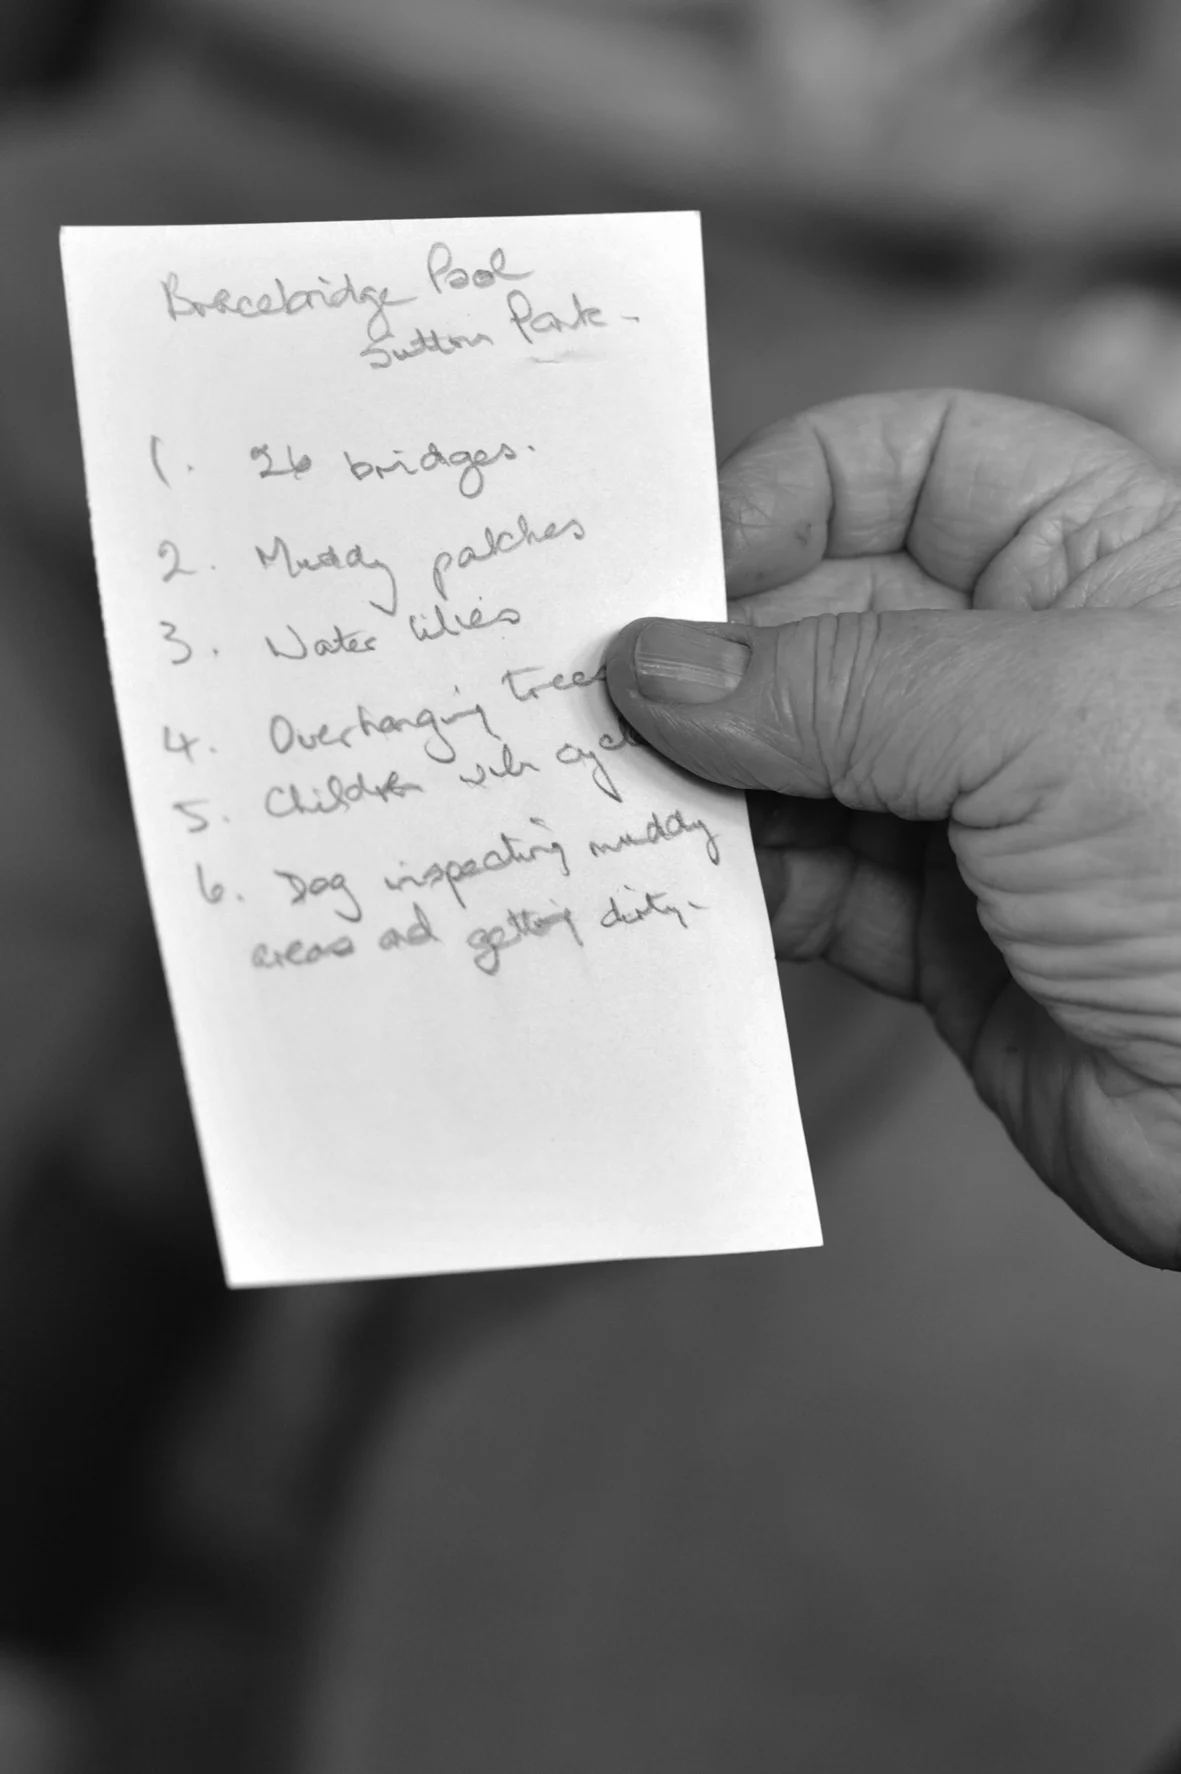 Bracebridge Pool
Sutton Park -
1. 26 bridges.
2. Muddy patches
3. Water lilies
4. Overhanging trees
5. Children with cycl
6. Dog inspecting muddy
areas and getting dirty.